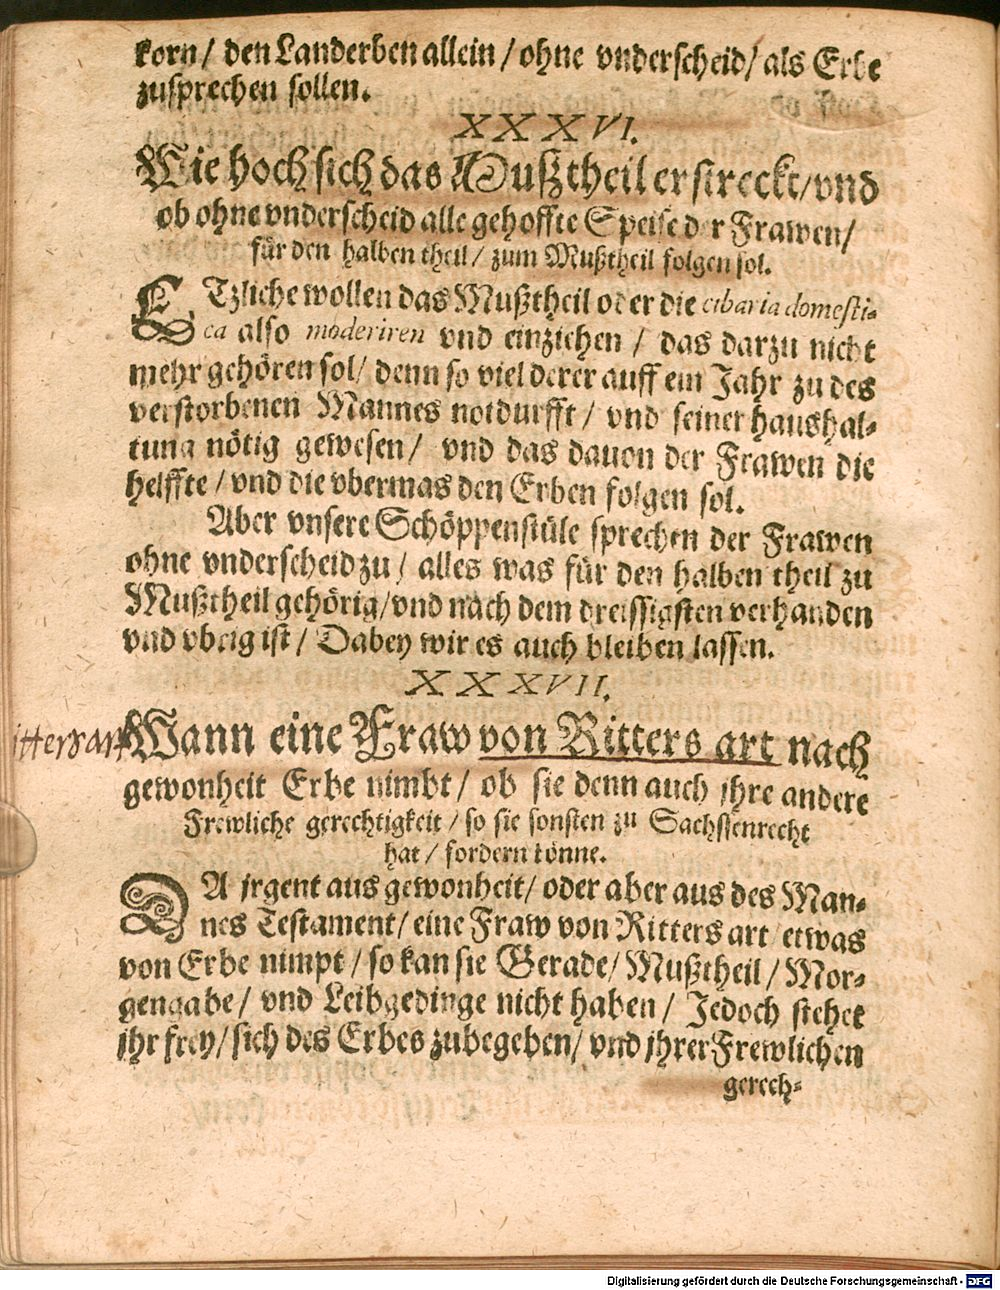 korn/ den Landerben allein/ ohne vnderscheid/ als Erbe
zusprechen sollen.
XXXVI.
Wie hoch sich das Mußtheil erstreckt/ vnd
ob ohne vnderscheid alle gehoffte Speise der Frawen/
für den halben theil/ zum Mußtheil folgen sol.
ETzliche wollen das Mußtheil oder die cibaria domesti-
ca also moderiren vnd einziehen/ das darzu nicht
mehr gehören sol/ denn so viel derer auff ein Jahr zu des
verstorbenen Mannes notdurfft/ vnd seiner haushal-
tung nötig gewesen/ vnd das dauon der Frawen die
helffte/ vnd die vbermas den Erben folgen sol.
Aber vnsere Schöppenstüle sprechen der Frawen
ohne vnderscheid zu/ alles was für den halben theil zu
Mußtheil gehörig/ vnd nach dem dreissigsten verhanden
vnd vbrig ist/ Dabey wir es auch bleiben lassen.
XXXVII.
ittersart
Wann eine Fraw von Ritters art nach
gewonheit Erbe nimbt/ ob sie denn auch jhre andere
Frewliche gerechtigkeit/ so sie sonsten zu Sachssenrecht
hat/ fordern könne.
DA jrgent aus gewonheit/ oder aber aus des Man-
nes Testament/ eine Fraw von Ritters art etwas
von Erbe nimpt/ so kan sie Gerade/ Mußtheil/ Mor-
gengabe/ vnd Leibgedinge nicht haben/ Jedoch stehet
jhr frey/ sich des Erbes zubegeben/ vnd jhrer Frewlichen
gerech-
Digitalisierung gefördert durch die Deutsche Forschungsgemeinschaft - DFG